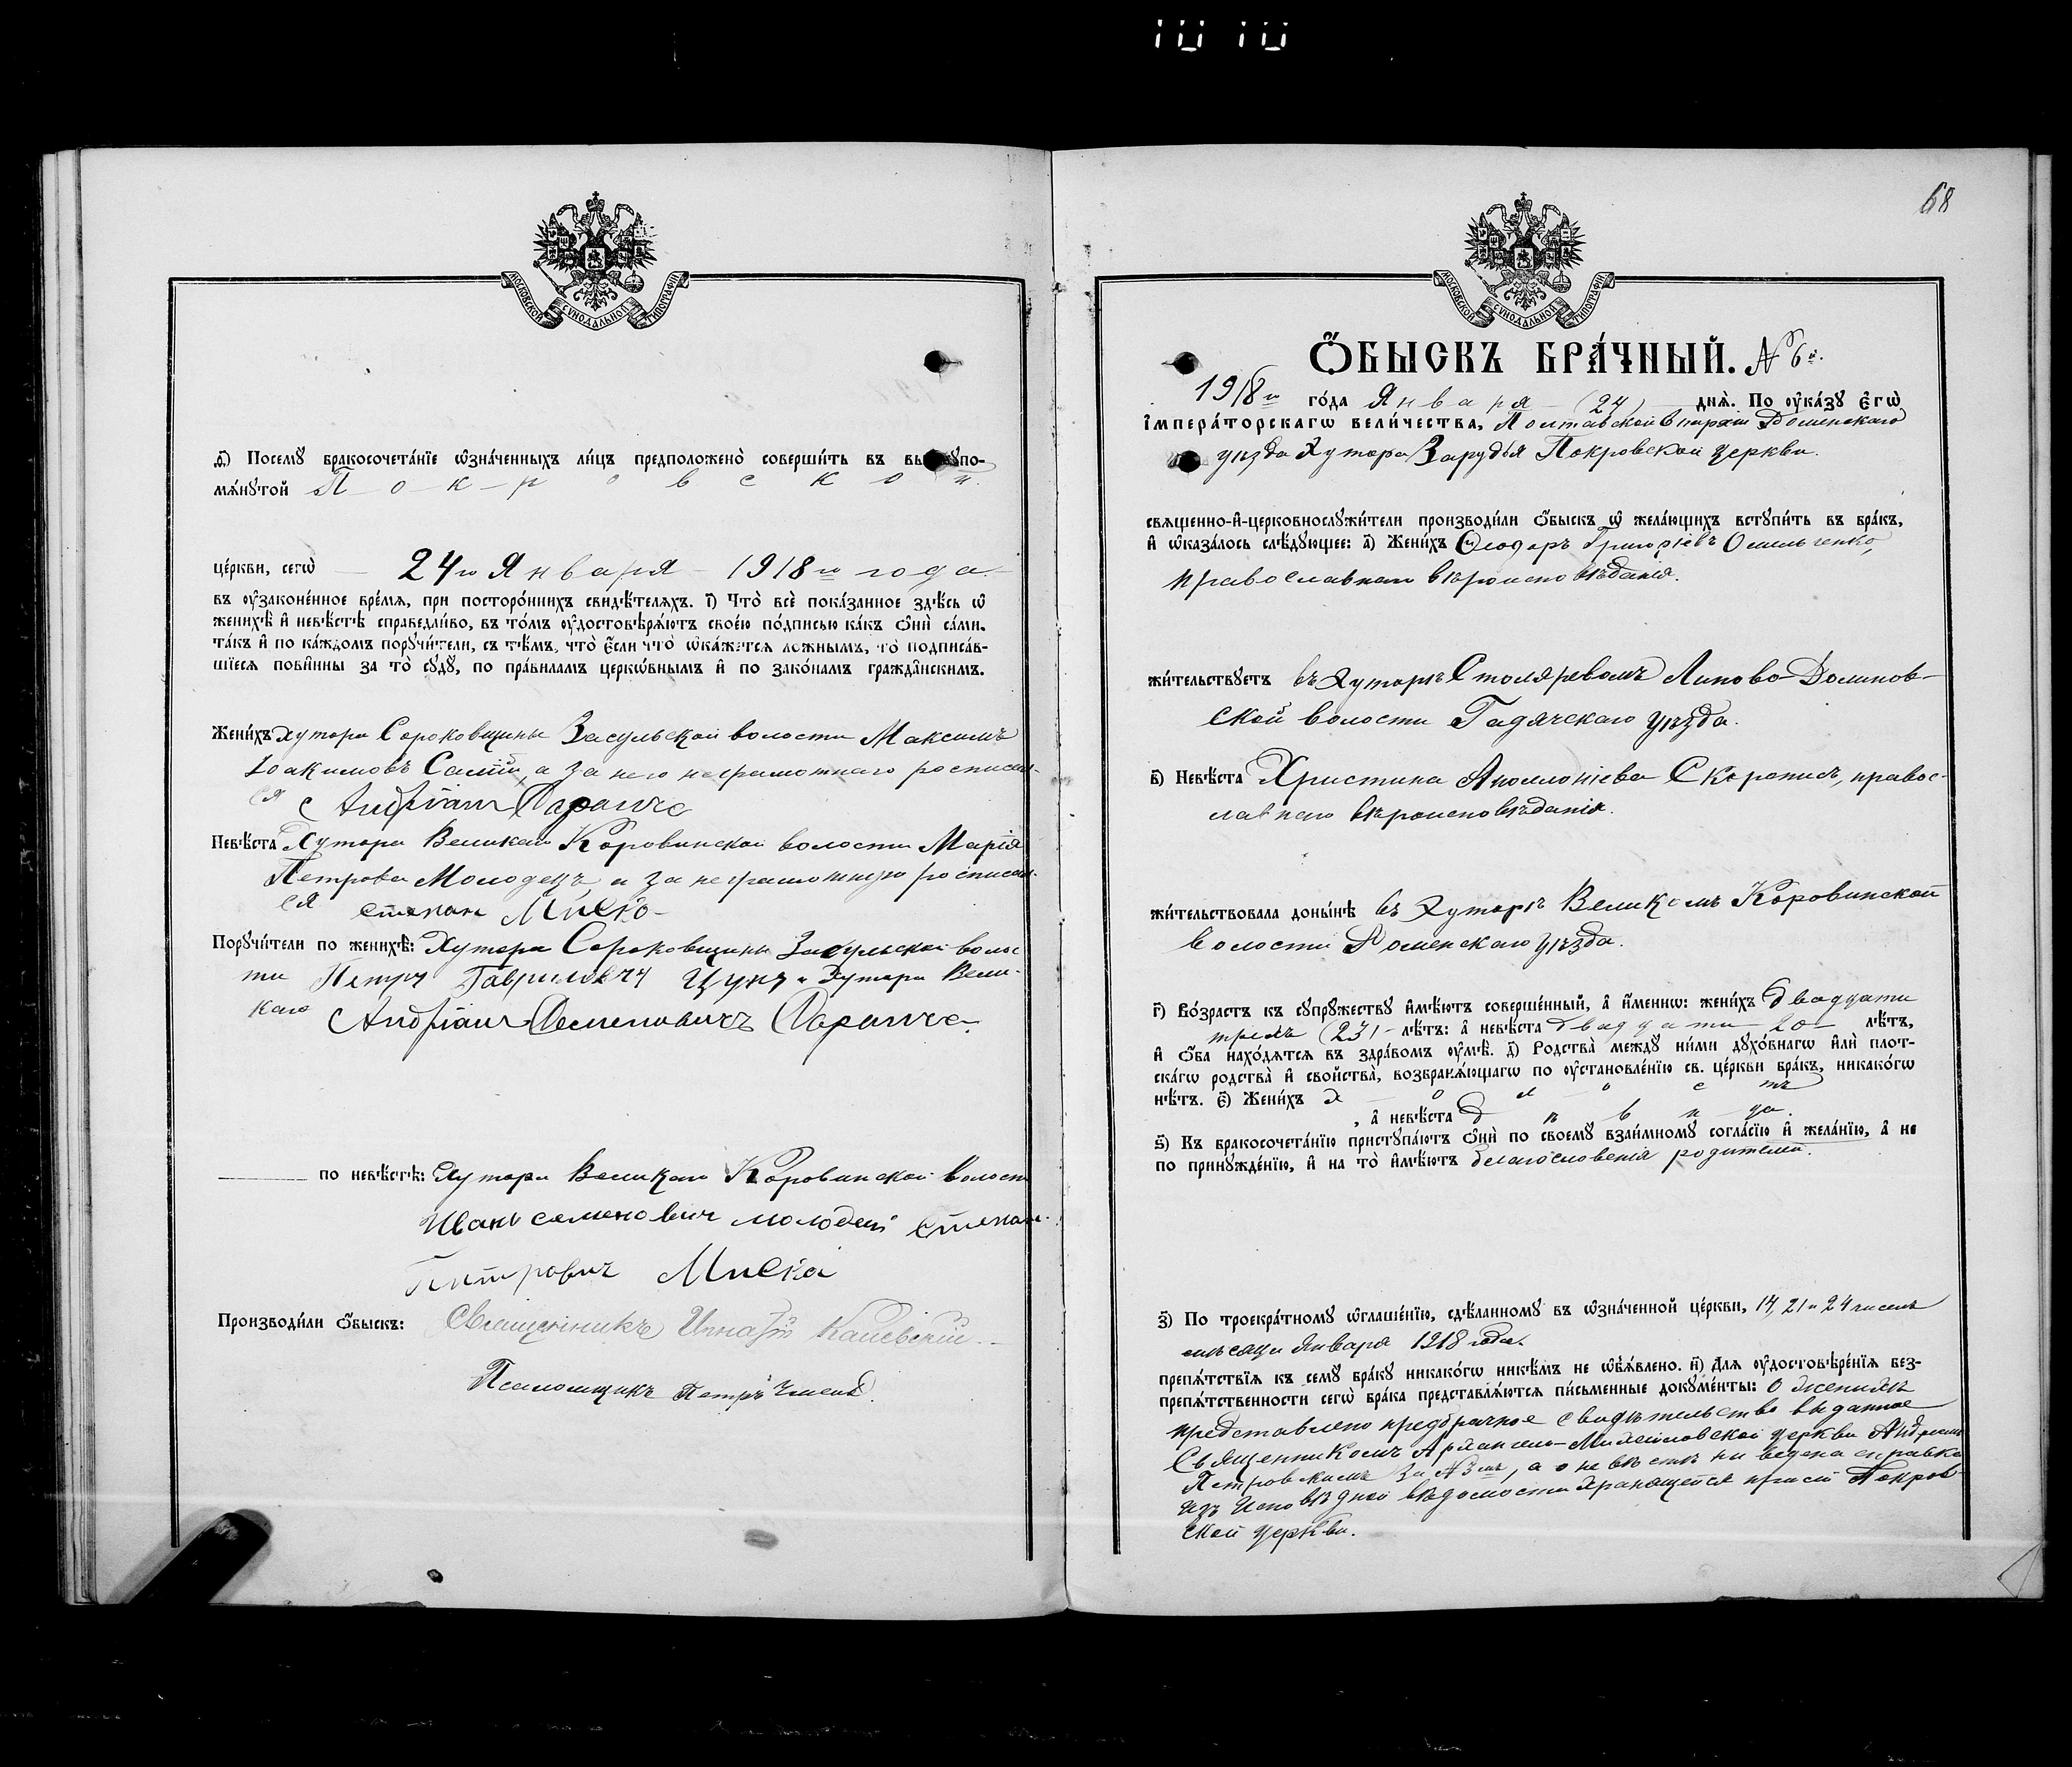 МОСКОВСКОЙ СѴНОДАЛЬНОЙ ТИПОГРАФІИ
ѳ҃) Посемꙋ бракосочета́нїе ѡ҆зна́ченныхъ ли́цъ предположено̀ соверши́ть въ вы упо-
мѧ́нꙋтой Покровской
це́ркви, сегѡ̀ 24го Января 1918го года
въ ᲂу҆зако́ненное вре́мѧ, при посторо́ннихъ свидѣ́телѧхъ. і҃) Что̀ всѐ пока́занное здѣ́сь ѡ҆
женихѣ̀ и҆ невѣ́стѣ справедли́во, въ то́мъ ᲂу҆достовѣрѧ́ютъ свое́ю по́дписью ка́къ ѻ҆нѝ са́ми,
та́къ и҆ по ка́ждомъ порꙋчи́тели, съ тѣ́мъ, что̀ є҆́сли что̀ ѡ҆ка́жетсѧ ло́жнымъ, то̀ подписа́в-
шїесѧ пови́нны за то̀ сꙋдꙋ̀, по пра́виламъ церкѡ́внымъ и҆ по зако́намъ гражда́нскимъ.
Жени́хъ Хутора Сороковщины Засульской волости Максимъ
Іоакимовъ Салій, а за него неграмотнаго росписал-
ся Андріанъ
Невѣ́ста Хутора Великаго Коровинской волости Марія
Петрова Молодецъ, а за неграмотную росписал-
ся степан Миско
Порꙋчи́тели по женихѣ̀: Хутора Сороковщины Засульской волос
ти Петръ Гаврилович Цупъ и Хутора Вели-
каго Андріанъ Семеновичъ
по невѣ́стѣ: Хутора Великаго Коровинской волости
Иван семенович молодец степан
Питрович Миска
Производи́ли ѻ҆́быскъ: Священникъ Игнатій
Псаломщикъ Петръ
68
МОСКОВСКОЙ СѴНОДАЛЬНОЙ ТИПОГРАФІИ
Ѻ҆́БЫСКЪ БРА́ЧНЫЙ. № 6й.
1918го го́да Января (24) днѧ̀. По ᲂу҆ка́зꙋ Є҆гѡ̀
І҆мпера́торскагѡ вели́чества, Полтавской Епархіи Роменскаго
уѣзда Хутора Зарудья Покровской церкви.
свѧщенно-и҆-церковнослꙋжи́тели производи́ли ѻ҆́быскъ ѡ҆ жела́ющихъ встꙋпи́ть въ бра́къ,
и҆ ѡ҆каза́лось слѣ́дꙋющее: а҃) Жени́хъ Ѳеодоръ Григоріевъ Омельченко,
православнаго вѣроисповѣданія.
жи́тельствꙋетъ въ Хуторѣ Столяревомъ Липово-Долинов-
ской волости Гадячскаго уѣзда.
в҃) Невѣ́ста Христина Аполлоніева Скоропись, правос-
лавнаго вѣроисповѣданія.
жи́тельствовала доны́нѣ въ Хуторѣ Великомъ Коровинской
волости Роменскаго уѣзда.
г҃) Во́зрастъ къ сꙋпрꙋ́жествꙋ и҆мѣ́ютъ соверше́нный, а҆ и҆́меннѡ: жени́хъ двадцати
трехъ (23) лѣ́тъ: а҆ невѣ́ста двадцати 20 лѣ́тъ,
и҆ ѻ҆́ба нахо́дѧтсѧ въ здра́вомъ ᲂу҆мѣ̀. д҃) Родства̀ междꙋ ни́ми дꙋхо́внагѡ и҆лѝ плот-
ска́гѡ родства̀ и҆ свойства̀, возбранѧ́ющагѡ по ᲂу҆становле́нїю св. це́ркви бра́къ, никако́гѡ
нѣ́тъ. є҃) Жени́хъ холостъ
, а҆ невѣ́ста дѣвица.
ѕ҃) Къ бракосочета́нїю пристꙋпа́ютъ ѻ҆нѝ по своемꙋ̀ взаи́мномꙋ согла́сїю и҆ жела́нїю, а҆ не
по принꙋжде́нїю, и҆ на то̀ и҆мѣ́ютъ благословенія родителей.
з҃) По троекра́тномꙋ ѡ҆глаше́нїю, сдѣ́ланномꙋ въ ѡ҆зна́ченной це́ркви, 14, 21 и 24 чиселъ
мѣсяца Января 1918 года.
препѧ́тствїѧ къ семꙋ̀ бра́кꙋ никако́гѡ никѣ́мъ не ѡ҆б̾ѧ́влено. и҃) Длѧ ᲂу҆достовѣре́нїѧ без-
препѧ́тственности сегѡ̀ бра́ка представлѧ́ютсѧ пи́сьменные докꙋме́нты: О женихѣ
представлено предбрачное свидѣтельство выданное
Священникомъ Архангело-Михайловской церкви Андреемъ
Петровскимъ За №3мъ, а о невѣстѣ на ведена справка
изъ Исповѣдной вѣдомости хранящейся при сей Покров-
ской церкви.